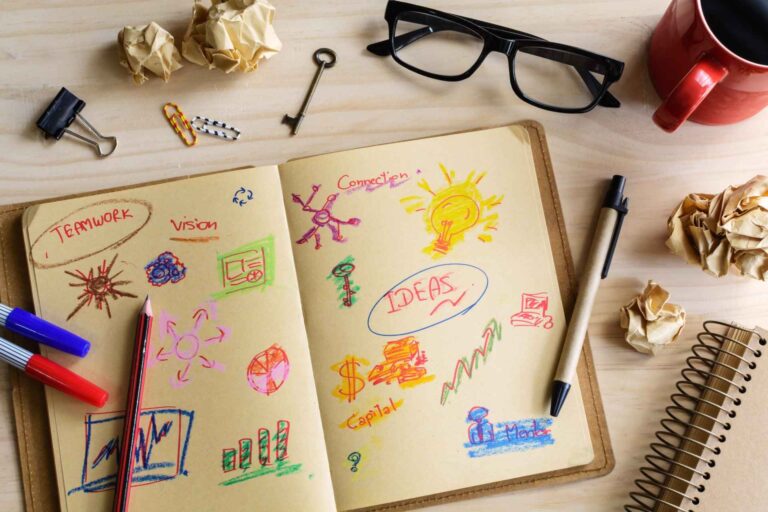 TEAMWORK
Vision
Connection
IDEAS
$
Capital
?